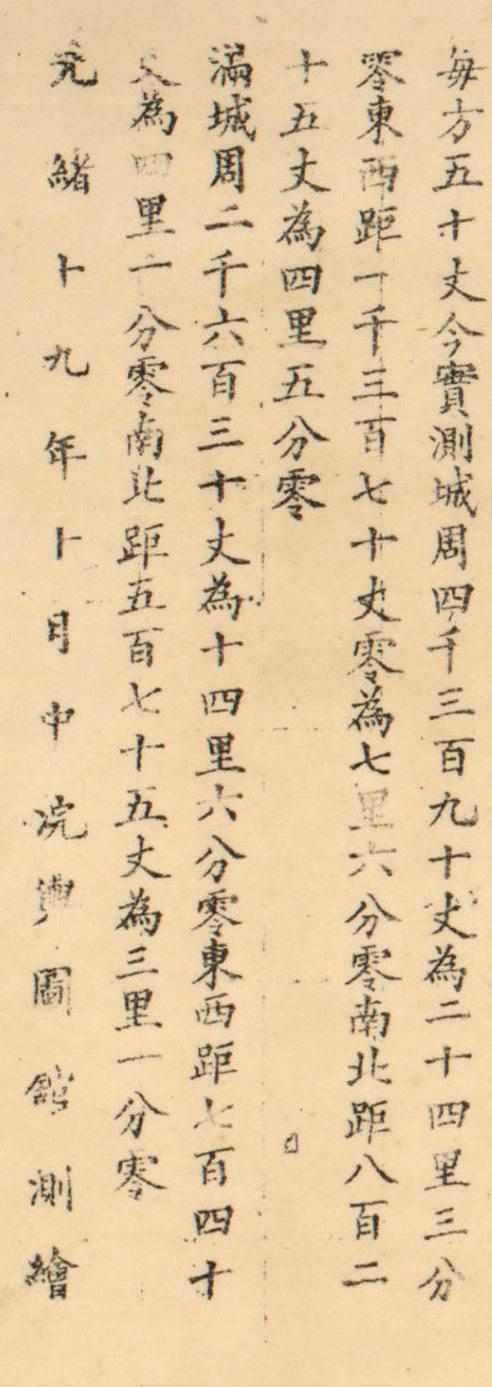 每方五十丈今實測城周四千三百九十丈為二十四里三分
零東西距一千三百七十丈零為七里六分零南北距八百二
十五丈為四里五分零
滿城周二千六百三十丈為十四里六分零東西距七百四十
丈為四里一分零南北距五百七十五丈為三里一分零
光緒十九年十月中浣輿圖館測繪